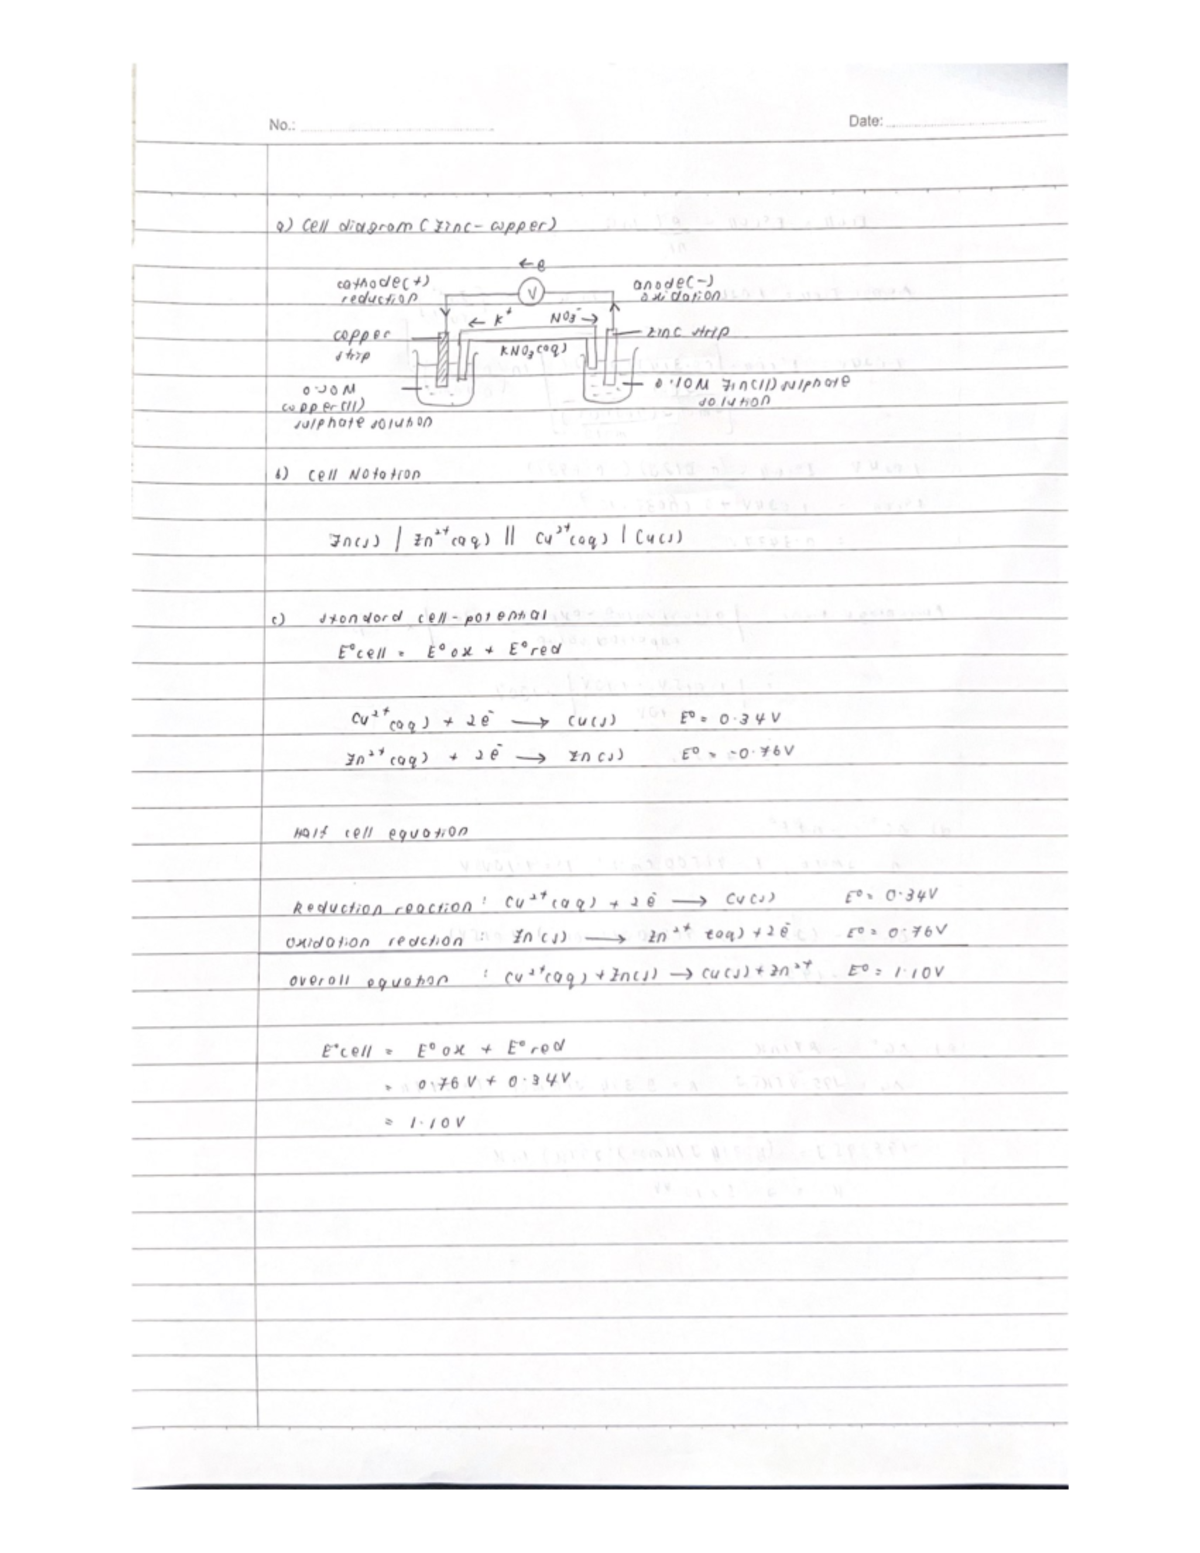 No.:
Date:
a) Cell diagram (Zinc-copper)
← e
cathode(+)
reduction
V
anode(-)
oxidation
← K⁺
NO₃⁻ →
copper
strip
zinc strip
KNO₃(aq)
M
copper(II)
sulphate solution
0.10M Zin(II) sulphate
solution
b) Cell Notation
Zn(s) | Zn²⁺(aq) || Cu²⁺(aq) | Cu(s)
c) standard cell-potential
E°cell = E°ox + E°red
Cu²⁺(aq) + 2e⁻ → Cu(s) E° = 0.34V
Zn²⁺(aq) + 2e⁻ → Zn(s) E° = -0.76V
Half cell equation
Reduction reaction : Cu²⁺(aq) + 2e⁻ → Cu(s) E° = 0.34V
oxidation reaction : Zn(s) → Zn²⁺(aq) + 2e⁻ E° = 0.76V
overall equation : Cu²⁺(aq) + Zn(s) → Cu(s) + Zn²⁺ E° = 1.10V
E°cell = E°ox + E°red
= 0.76V + 0.34V
= 1.10V